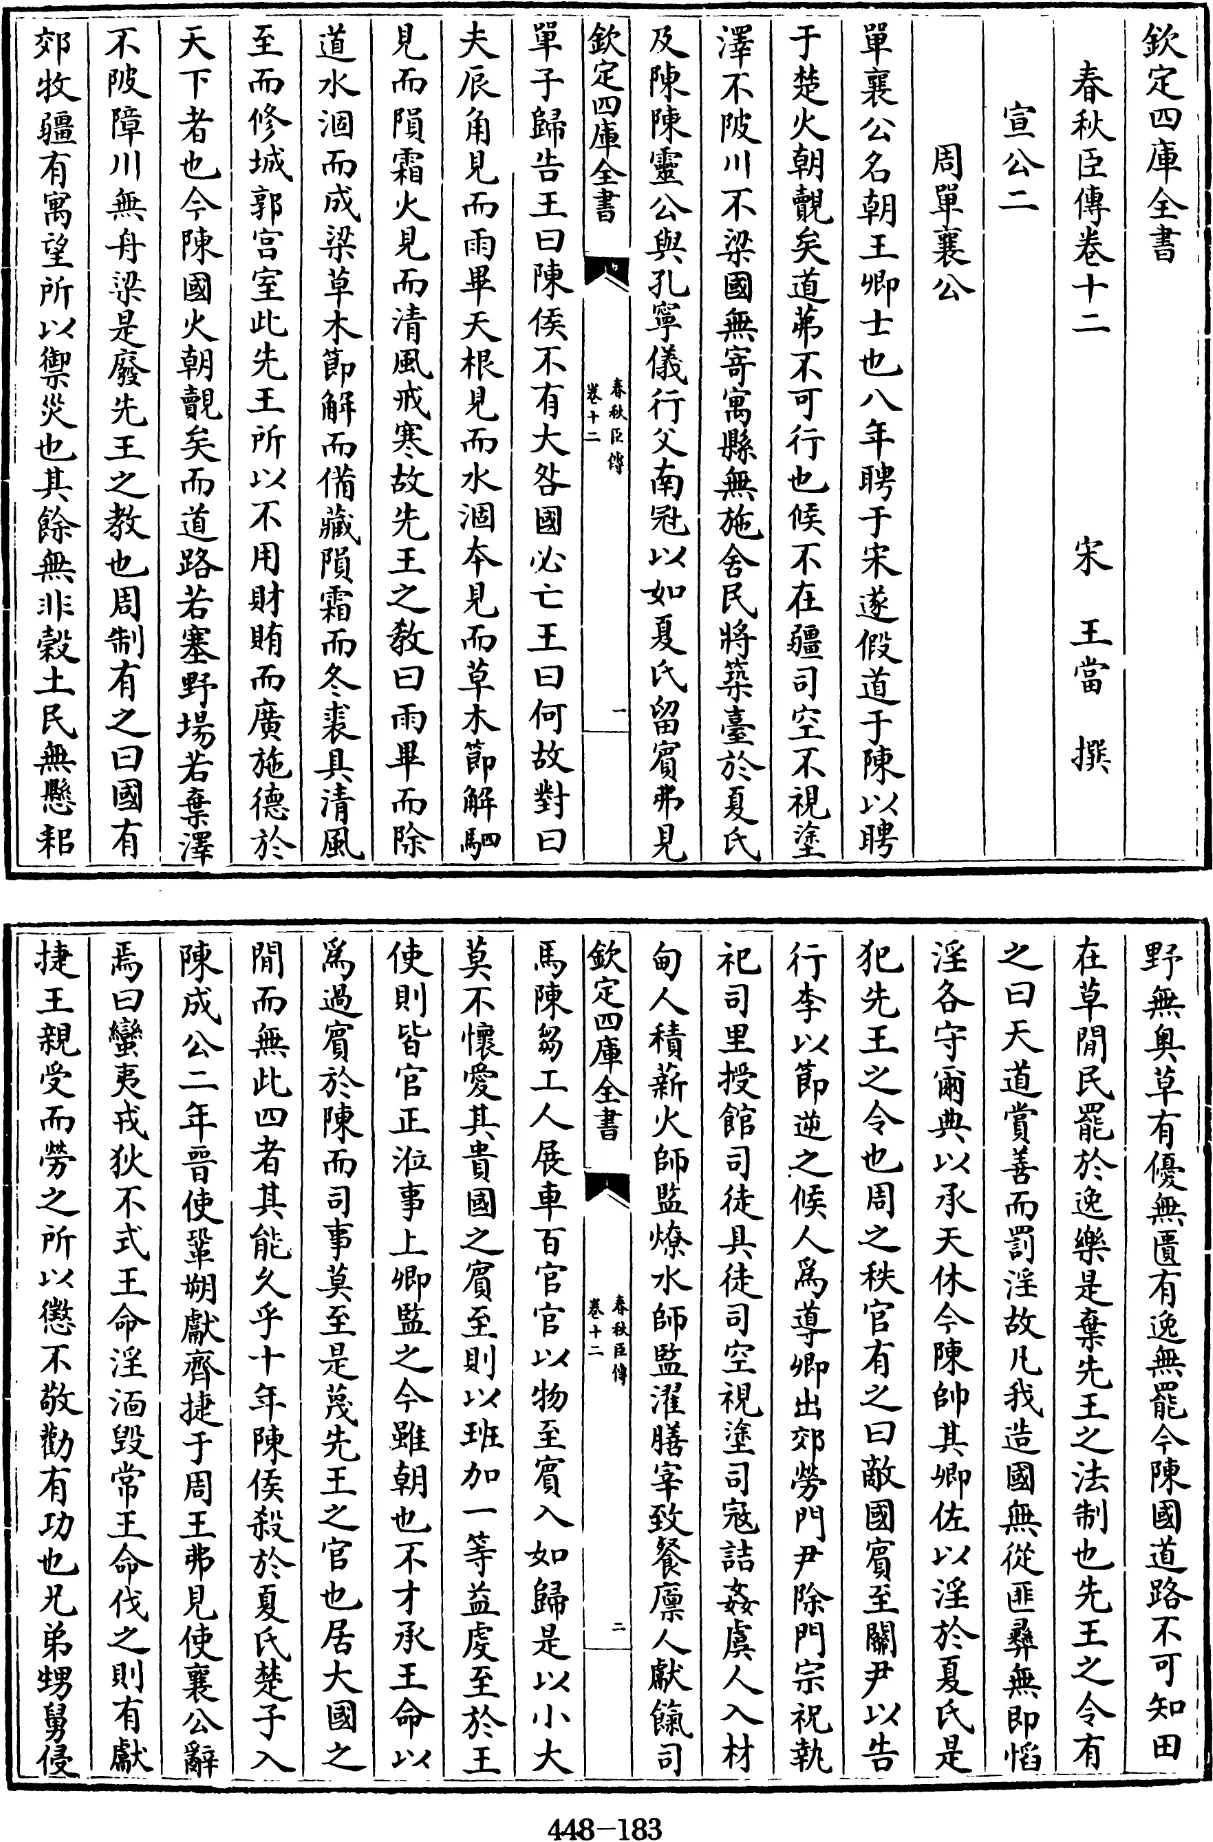 欽定四庫全書
春秋臣傳卷十二
宋 王當 撰
宣公二
周單襄公
單襄公名朝王卿士也八年聘于宋遂假道于陳以聘
于楚火朝覿矣道茀不可行也候不在疆司空不視塗
澤不陂川不梁國無寄寓縣無施舍民將築臺於夏氏
及陳陳靈公與孔寧儀行父南冠以如夏氏留賓弗見
欽定四庫全書
春秋臣傳
卷十二
一
單子歸告王曰陳侯不有大咎國必亡王曰何故對曰
夫辰角見而雨畢天根見而水涸本見而草木節解駟
見而隕霜火見而清風戒寒故先王之教曰雨畢而除
道水涸而成梁草木節解而備藏隕霜而冬裘具清風
至而修城郭宫室此先王所以不用財賄而廣施德於
天下者也今陳國火朝覿矣而道路若塞野場若棄澤
不陂障川無舟梁是廢先王之教也周制有之曰國有
郊牧疆有寓望所以禦災也其餘無非穀土民無懸耜
野無奥草有優無匱有逸無罷今陳國道路不可知田
在草閒民罷於逸樂是棄先王之法制也先王之令有
之曰天道賞善而罰淫故凡我造國無從匪彝無即慆
淫各守爾典以承天休今陳帥其卿佐以淫於夏氏是
犯先王之令也周之秩官有之曰敵國賓至關尹以告
行李以節逆之候人為導卿出郊勞門尹除門宗祝執
祀司里授館司徒具徒司空視塗司寇詰姦虞人入材
甸人積薪火師監燎水師監濯膳宰致餐廩人獻餼司
欽定四庫全書
春秋臣傳
卷十二
二
馬陳芻工人展車百官官以物至賓入如歸是以小大
莫不懷愛其貴國之賓至則以班加一等益虔至於王
使則皆官正涖事上卿監之今雖朝也不才承王命以
為過賓於陳而司事莫至是蔑先王之官也居大國之
閒而無此四者其能久乎十年陳侯殺於夏氏楚子入
陳成公二年晉使鞏朔獻齊捷于周王弗見使襄公辭
焉曰蠻夷戎狄不式王命淫湎毁常王命伐之則有獻
捷王親受而勞之所以懲不敬勸有功也兄弟甥舅侵
448-183